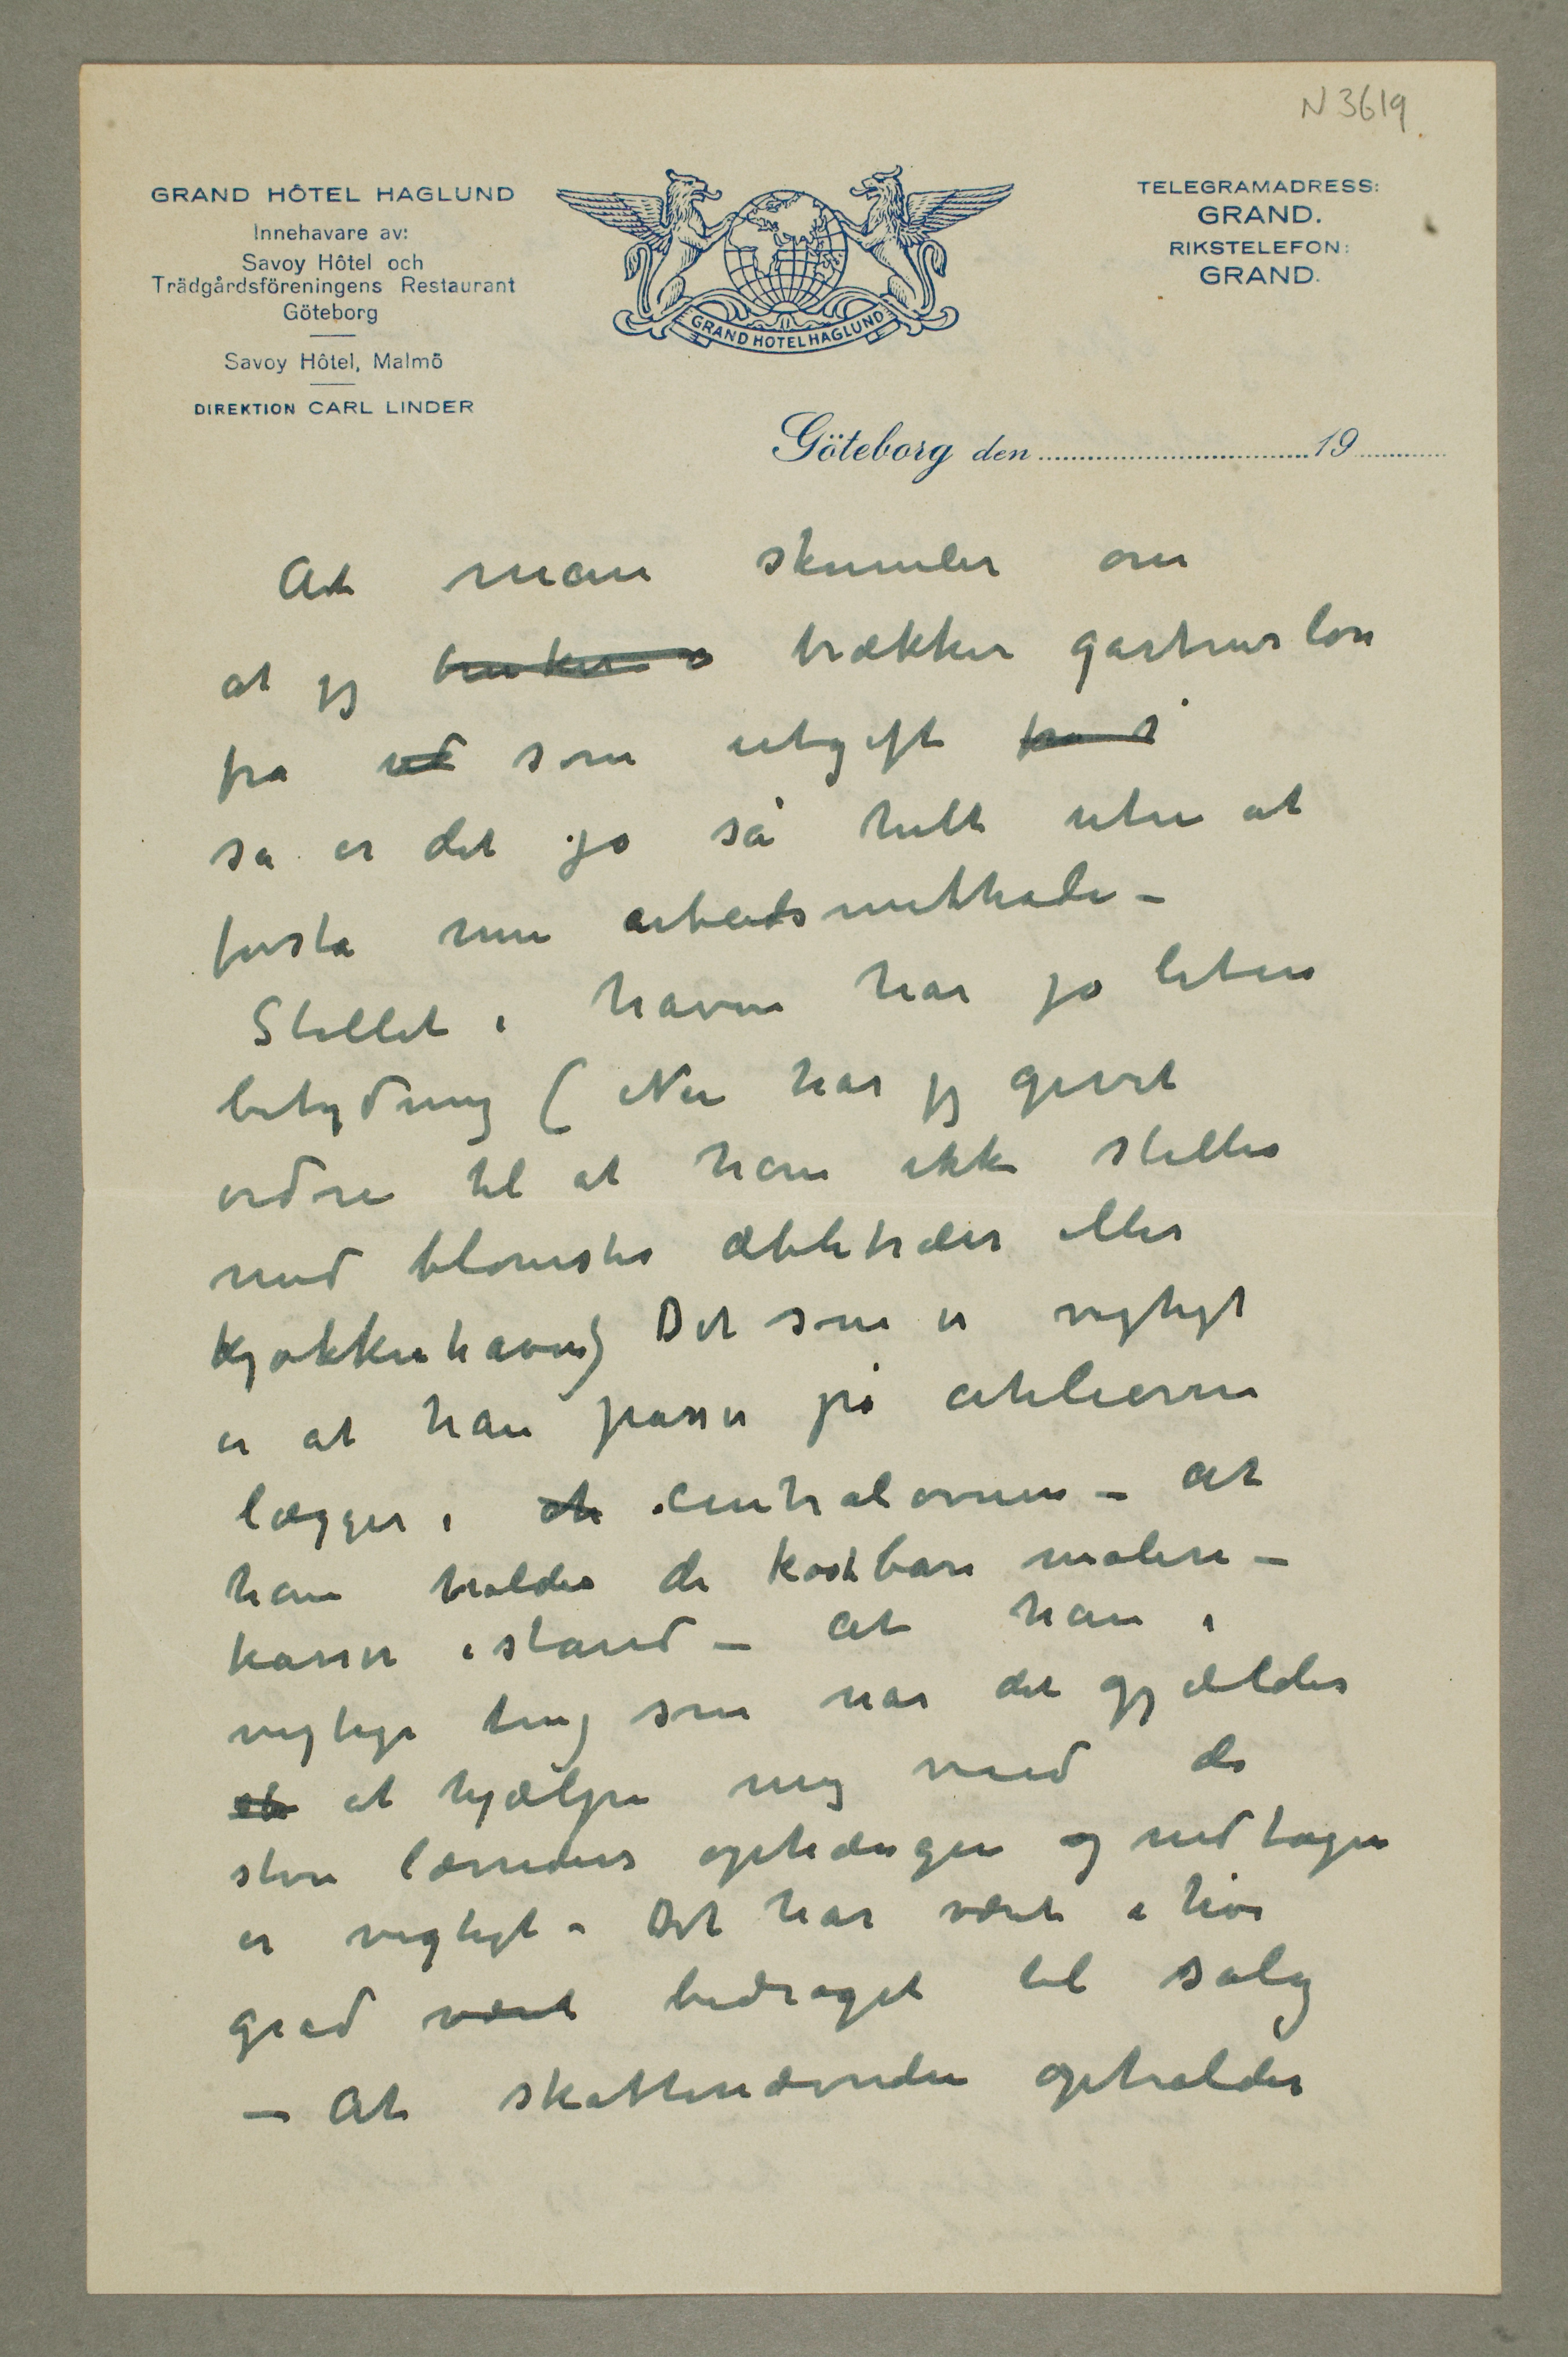 N 3619
GRAND HÔTEL HAGLUND
Innehavare av:
Savoy Hôtel och
Trädgårdsföreningens Restaurant
Göteborg
Savoy Hôtel, Malmö
DIREKTION CARL LINDER
GRAND HOTEL HAGLUND
TELEGRAMADRESS:
GRAND.
RIKSTELEFON:
GRAND.
Göteborg den 19
At man skumler om
at jeg trækker gartnerløn
fra ud som utgift fra
så er det jo så helt uten at
forstå min arbeidsmethode –
Stellet i haven har jo liten
betydning (Nu har jeg givet
ordre til at han ikke steller
med blomster æbletrær eller
kjøkkenhaven) Det som er vigtigt
er at han passer på atelierne
lægger i centralovnen – at
han holder de kostbare maleri-
kasser istand – at han i
vigtige ting som når det gjælder
at hjælpe mig med de
store lærreders ophængen og nedtagen
er vigtigt – Det har været i høi
grad været bedraget til salg
– At skattenævnden opholder